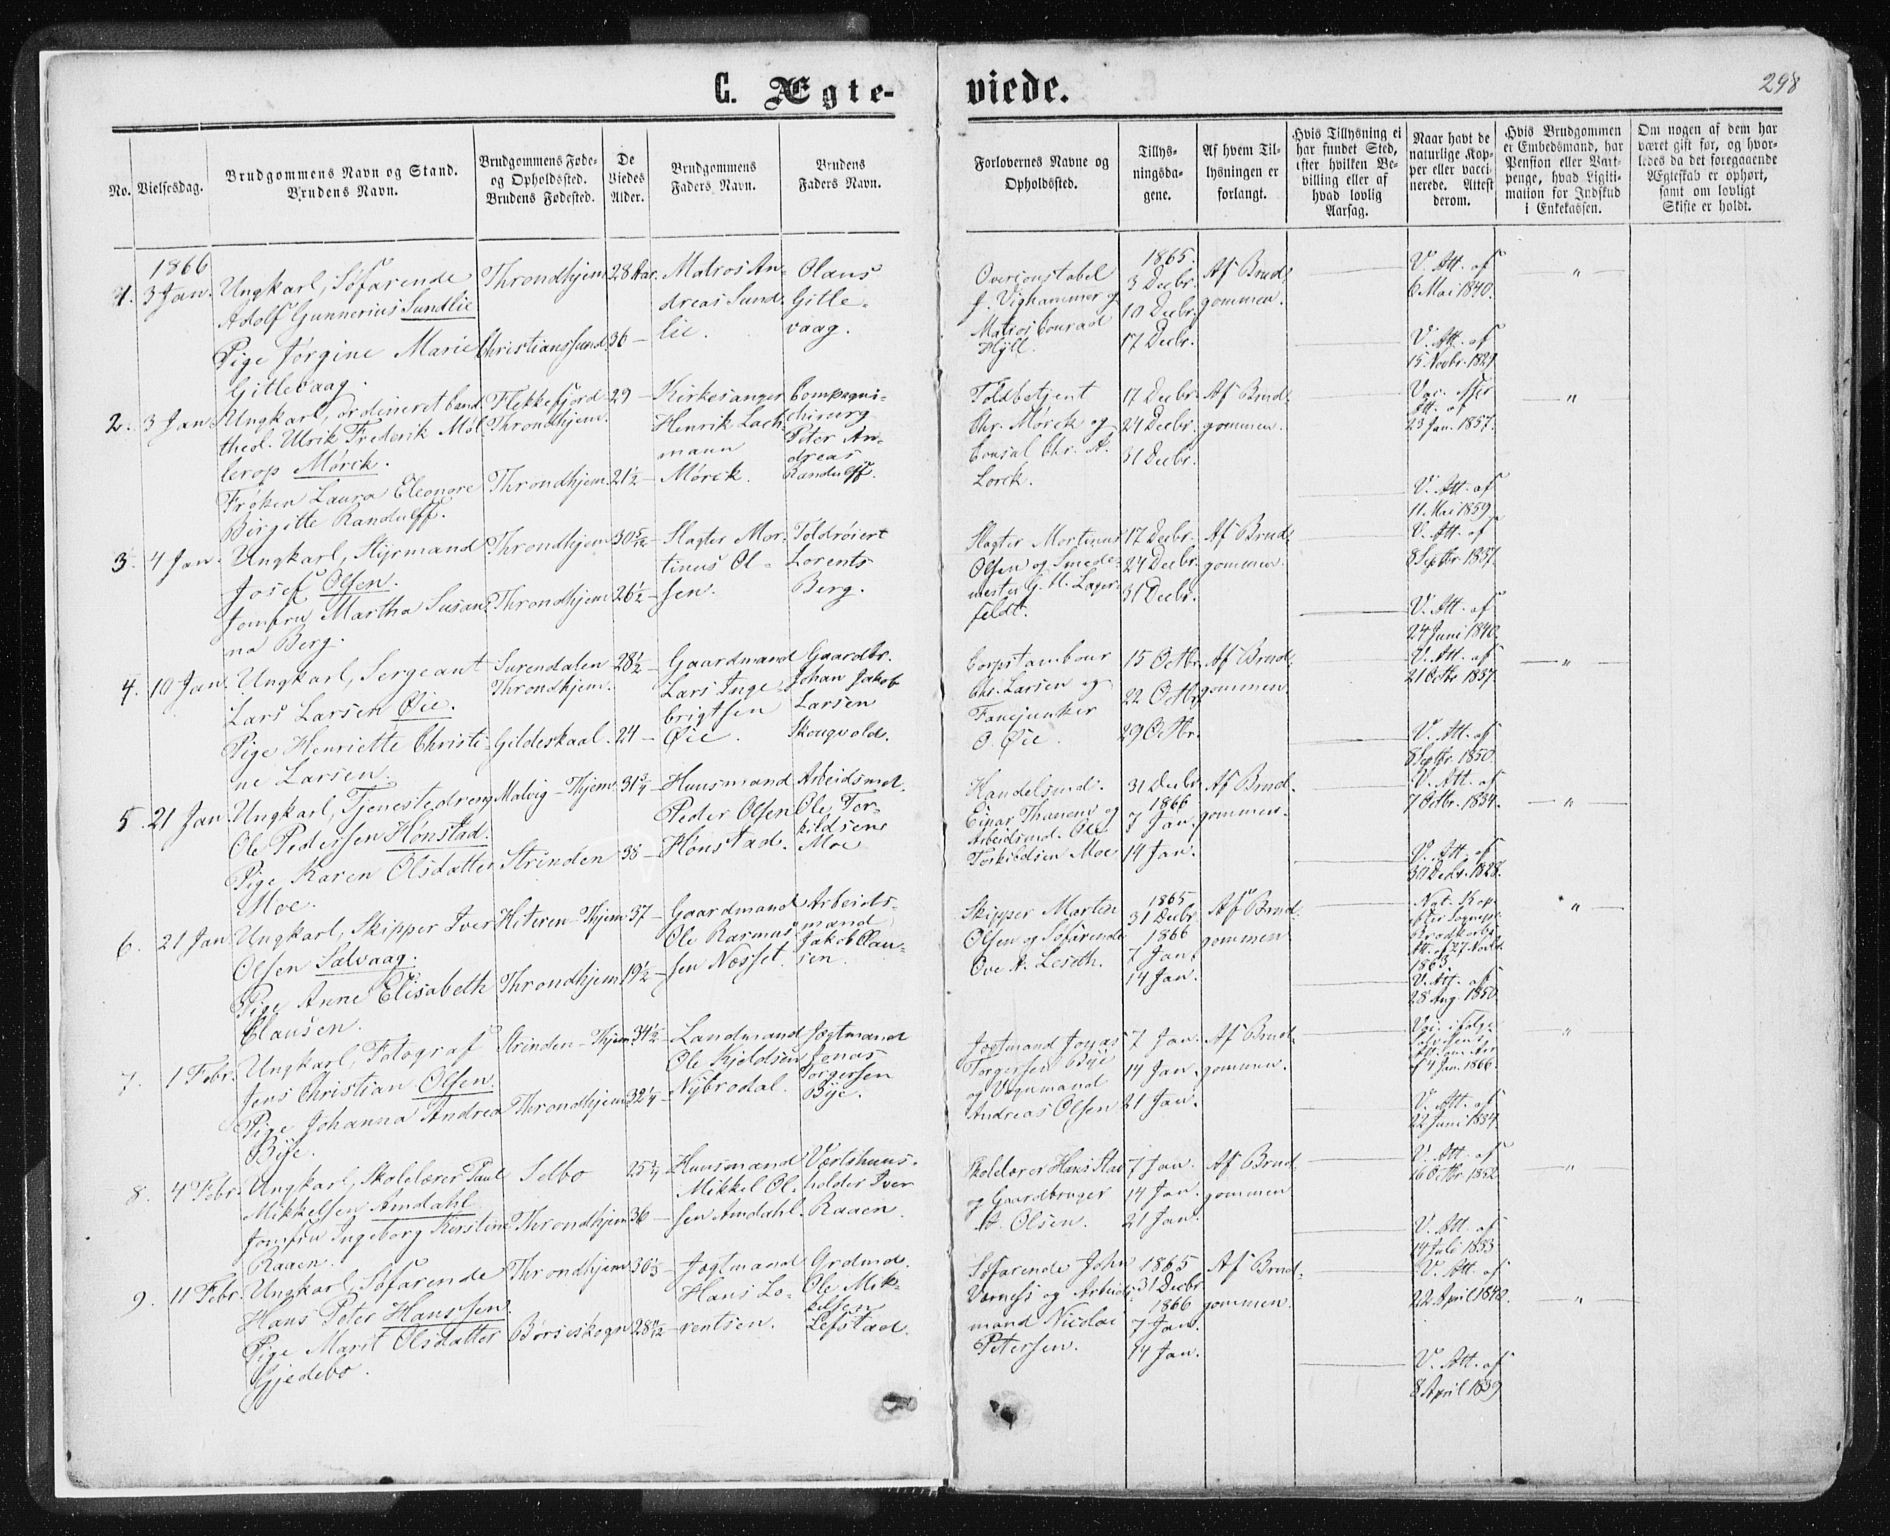 C. Ægte-
viede.
298
No.
Vielsesdag.
Brudgommens Navn og Stand.
Brudens Navn.
Brudgommens Føde-
og Opholdssted.
Brudens Fødested.
De
Viedes
Alder.
Brudgommens
Faders Navn.
Brudens
Faders Navn.
Forlovernes Navne og
Opholdssted.
Tillys-
ningsda-
gene.
Af hvem Til-
lysningen er
forlangt.
Hvis Tillysning ei
har fundet Sted,
efter hvilken Be-
villing eller af
hvad lovlig
Aarsag.
Naar havt de
naturlige Kop-
per eller vacci-
nerede. Attest
derom.
Hvis Brudgommen
er Embedsmand, har
Pension eller Vart-
penge, hvad Ligiti-
mation for Indskud
i Enkekassen.
Om nogen af dem har
været gift før, og hvor-
ledes da det foregaaende
Ægteskab er ophørt,
samt om lovligt
Skifte er holdt.
1866
1. 3 Jan.
Ungkarl, Søfarende
Adolf Gunnerius Sundlie
Pige Jørgine Marie
Gitlevaag.
Throndhjem
Christianssund
28 Aar.
36 —
Matros An-
dreas Sund-
lie.
Olaus
Gitle-
vaag.
Overconstabel
J. Vighammer og
Matros Conrad
Hjll.
1865.
3 Decbr.
10 Decbr.
17 Decbr.
Af Brud-
gommen.
V. Att. af
6 Mai 1840.
V. Att. af
15 Novbr. 1829
"
2. 3 Jan.
Ungkarl, ordineret cand.
theol. Ulrik Frederik Møl-
lerop Mørck.
Frøken Laura Eleonore
Birgitte Randulff.
Flekkefjord
Throndhjem.
Throndhjem
29 —
21½ —
Kirkesanger
Henrik Lach-
mann
Mørck.
Compagni-
chirurg
Peter An-
dreas
Randulff.
Toldbetjent
Chr. Mørck og
Consul Chr. A.
Lorck.
17 Decbr.
24 Decbr.
31 Decbr.
Af Brud-
gommen.
Vac. efter
Att. af
23 Jan. 1857.
V. Att. af
11 Mai 1859.
"
3. 4 Jan.
Ungkarl, Styrmand
Josef Olsen.
Jomfru Martha Susan-
na Berg.
Throndhjem
Throndhjem
30 5/12 —
26½ —
Slagter Mor-
tinus Ol-
sen.
Toldrøiert
Lorents
Berg.
Slagter Mortinus
Olsen og Smede-
mester G. H. Lager-
feldt.
17 Decbr.
24 Decbr.
31 Decbr.
Af Brud-
gommen
V. Att. af
8 Septbr. 1837.
V. Att. af
24 Juni 1840.
4. 10 Jan.
Ungkarl, Sergeant
Lars Larsen Øie.
Pige Henriette Christi-
ne Larsen.
Surendalen
Throndhjem.
Gildeskaal.
28½ —
24 —
Gaardmand
Lars Inge-
brigtsen
Øie.
Gaardbr.
Johan Jakob
Larsen
Skougvold.
Corpstambour
Chr. Larsen og
Fanejunker
O. Øie.
15 Octbr.
22 Octbr.
29 Octbr.
Af Brud-
gommen
V. Att. af
21 Octbr 1857.
V. Att. af
8 Septbr. 1850.
— " —
5. 21 Jan.
Ungkarl, Tjenestedreng
Ole Pedersen Hønstad.
Pige Karen Olsdatter
Moe.
Malvig - Thjem
Strinden
31 3/4
38 —
Huusmand
Peder Olsen
Hønstad.
Arbeidsmd.
Ole Tor-
kildsen
Moe
Handelsmd.
Einar Thanem og
Arbeidsmd. Ole
Torkildsen Moe
31 Decbr.
1866
7 Jan.
14 Jan.
Af Brud-
gommen.
V. Att. af
7 Octbr. 1834.
V. Att. af
30 Decbr. 1828.
— " —
6. 21 Jan
Ungkarl, Skipper Iver
Olsen Salvaag.
Pige Anne Elisabeth
Clausen.
Hiteren - Thjem
Throndhjem
37 —
19½ —
Gaardmand
Ole Rasmus-
sen Nesset.
Arbeids-
mand
Jakob Clau-
sen.
Skipper Morten
Olsen og Søfarende
Ove A. Leseth.
1865
31 Decbr
1866
7 Jan.
14 Jan.
Af Brud-
gommen
Nat. Kop.
efter Sognepr.
Att. af 27 Novbr
1863.
V. Att. af
28 Aug. 1850.
"
7. 1 Febr.
Ungkarl, Fotograf
Jens Christian Olsen.
Pige Johanna Andrea
Bye.
Strinden - Thjem
Throndhjem
34½ —
32¼ —
Landmand
Ole Kjeldsen
Nybrodal.
Jægtmand
Jonas
Torgersen
Bye.
Jægtmand Jonas
Torgersen Bye
og Vognmand
Andreas Olsen
7 Jan.
14 Jan.
21 Jan.
Af Brud-
gommen.
af 4 Jan. 1866.
V. Att. af
22 Juni 1834.
"
8. 4 Febr.
Ungkarl, Skolelærer Paul
Mikkelsen Amdahl
Jomfru Ingeborg Kerstine
Raaen.
Selbo
Throndhjem
25 3/4
36 —
Huusmand
Mikkel Ol-
sen Amdahl.
Værtshuus-
holder Iver
Raaen.
Skolelærer Hans Stav
og Gaardbruger
A. Olsen.
7 Jan.
14 Jan.
21 Jan.
Af Brud-
gommen
V. Att. af
16 Octbr 1852
V. Att. af
14 Juli 1833.
"
9. 11 Febr.
Ungkarl, Søfarende
Hans Peter Hanssen
Pige Marit Olsdatter
Gjedebo.
Throndhjem
Børseskogn
28 11/12 —
Jægtmand
Hans Lo-
rentsen.
Grdmd.
Ole Mik-
kelsen
Lefstad.
Søfarende John
Værness og Arbeids-
mand Nicolai
Petersen.
1865
31 Decbr
1866
7 Jan.
14 Jan.
Af Brud-
gommen.
V. Att. af
22 April 1840.
V. Att. af
8 April 1839
— " —